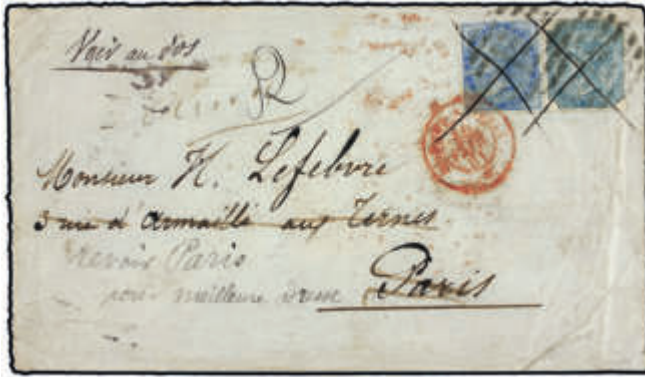 Voir au dos
R
Monsieur H. Lefebvre
3 rue d'Armaillé aux Ternes
revoir Paris
pour meilleure
Paris